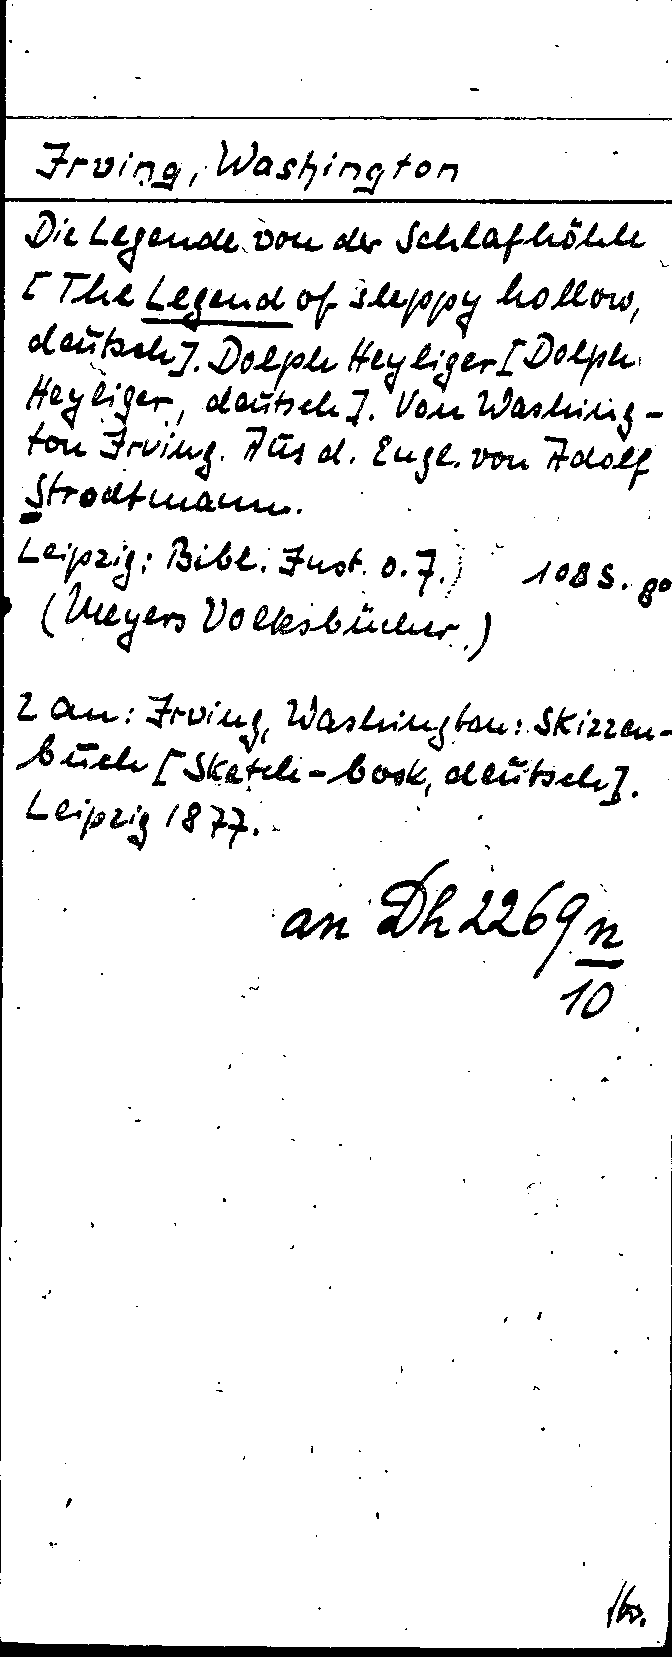 Irving, Washington
Die Legende von der Schlafhöhle
[The Legend of sleppy hollow,
deutsch]. Dolph Heyliger [Dolph
Heyliger, deutsch]. Von Washing-
ton Irving. Aus d. Engl. von Adolf
Strodtmann.
Leipzig: Bibl. Inst. o. J.) 108 S. 8°
(Meyers Volksbücher.)
2 an: Irving, Washington: Skizzen-
buch [Sketch-book, deutsch].
Leipzig 1877.
an Dh 2269 n
10